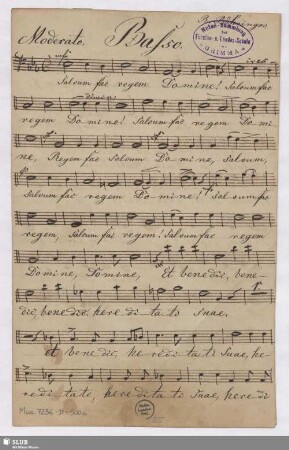 Moderato. Basso.
Noten-Sammlung
Fürsten- u. Landes-Schule
GRIMMA
Salvum fac regem Domine! Salvum fac
regem Domine! Salvum fac regem Domi
ne, Regem fac Salvum Domine, Salvum,
Salvum fac regem Domine! Salvum fac
regem, Salvum fac regem! Salvum fac regem
Domine, Domine, Et benedic, bene-
dic, benedic heredi ta ti Suae.
et benedic, he redi ta ti Suae, he
redi tate, hereditati Suae, heredi
Mus. 7236-D-500a
SLUB